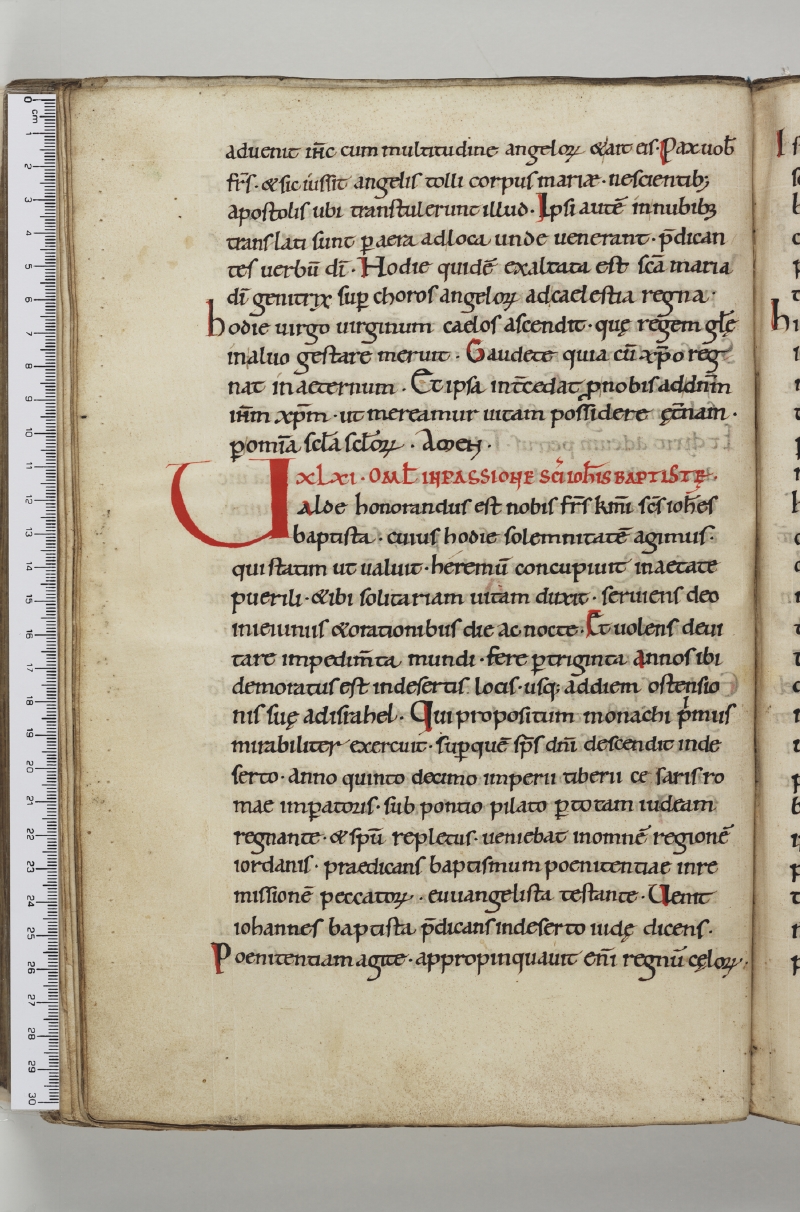 aduenit ih̅c cum multitudine angeloꝝ &ait eis· Pax uob̅
fr̅s· &sic iussit angelis tolli corpus mariæ· nescientib;
apostolis ubi transtulerunt illud· Ipsi aute̅ innubib;
translati sunt ꝑ aera adloca unde uenerant· p̅dican
tes uerbu̅ di̅· Hodie quide̅ exaltata est sc̅a maria
di̅ genitrix suꝑ choros angeloꝝ adcaelestia regna·
hodie uirgo uirginum caelos ascendit· quę regem glę̅
inaluo gestare meruit· Gaudete quia cu̅ xp̅o reg
nat inaeternum· Et ipsa int̅cedat ꝓnobis addn̅m
ih̅m xp̅m· ut mereamur uitam possidere ęt̅nam·
ꝑ om̅ia sc̅la sc̅loꝝ· Amen·
xlxi· OML̅ INPASSIONE SC̅I IOH̅IS BAPTISTĘ·
Ualde honorandus est nobis fr̅s km̅i sc̅s ioh̅es
baptista· cuius hodie solemnitate̅ agimus·
qui statim ut ualuit· heremu̅ concupiuit inaetate
puerili· &ibi solitariam uitam duxit· seruiens deo
inieiuniis &orationibus die ac nocte· Et uolens deui
tare impedim̅ta mundi· fere ꝑtriginta annos ibi
demoratus est indesertis locis· usq; addiem ostensio
nis suę adisrahel· Qui propositum monachi pͥmus
mirabiliter exercuit· suꝑque̅ sp̅s dn̅i descendit inde
serto· anno quinto decimo imperii tiberii ce saris ro
mae imꝑatoris· sub pontio pilato ꝑtotam iudeam
regnante· &sp̅u repletus· ueniebat inomne̅ regione̅
iordanis· praedicans baptismum poenitentiae inre
missione̅ peccatoꝝ· euuangelista testante· Uenit
iohannes baptista p̅dicans indeserto iudę dicens·
Poenitentiam agite· appropinquauit eni̅ regnu̅ cęloꝝ·